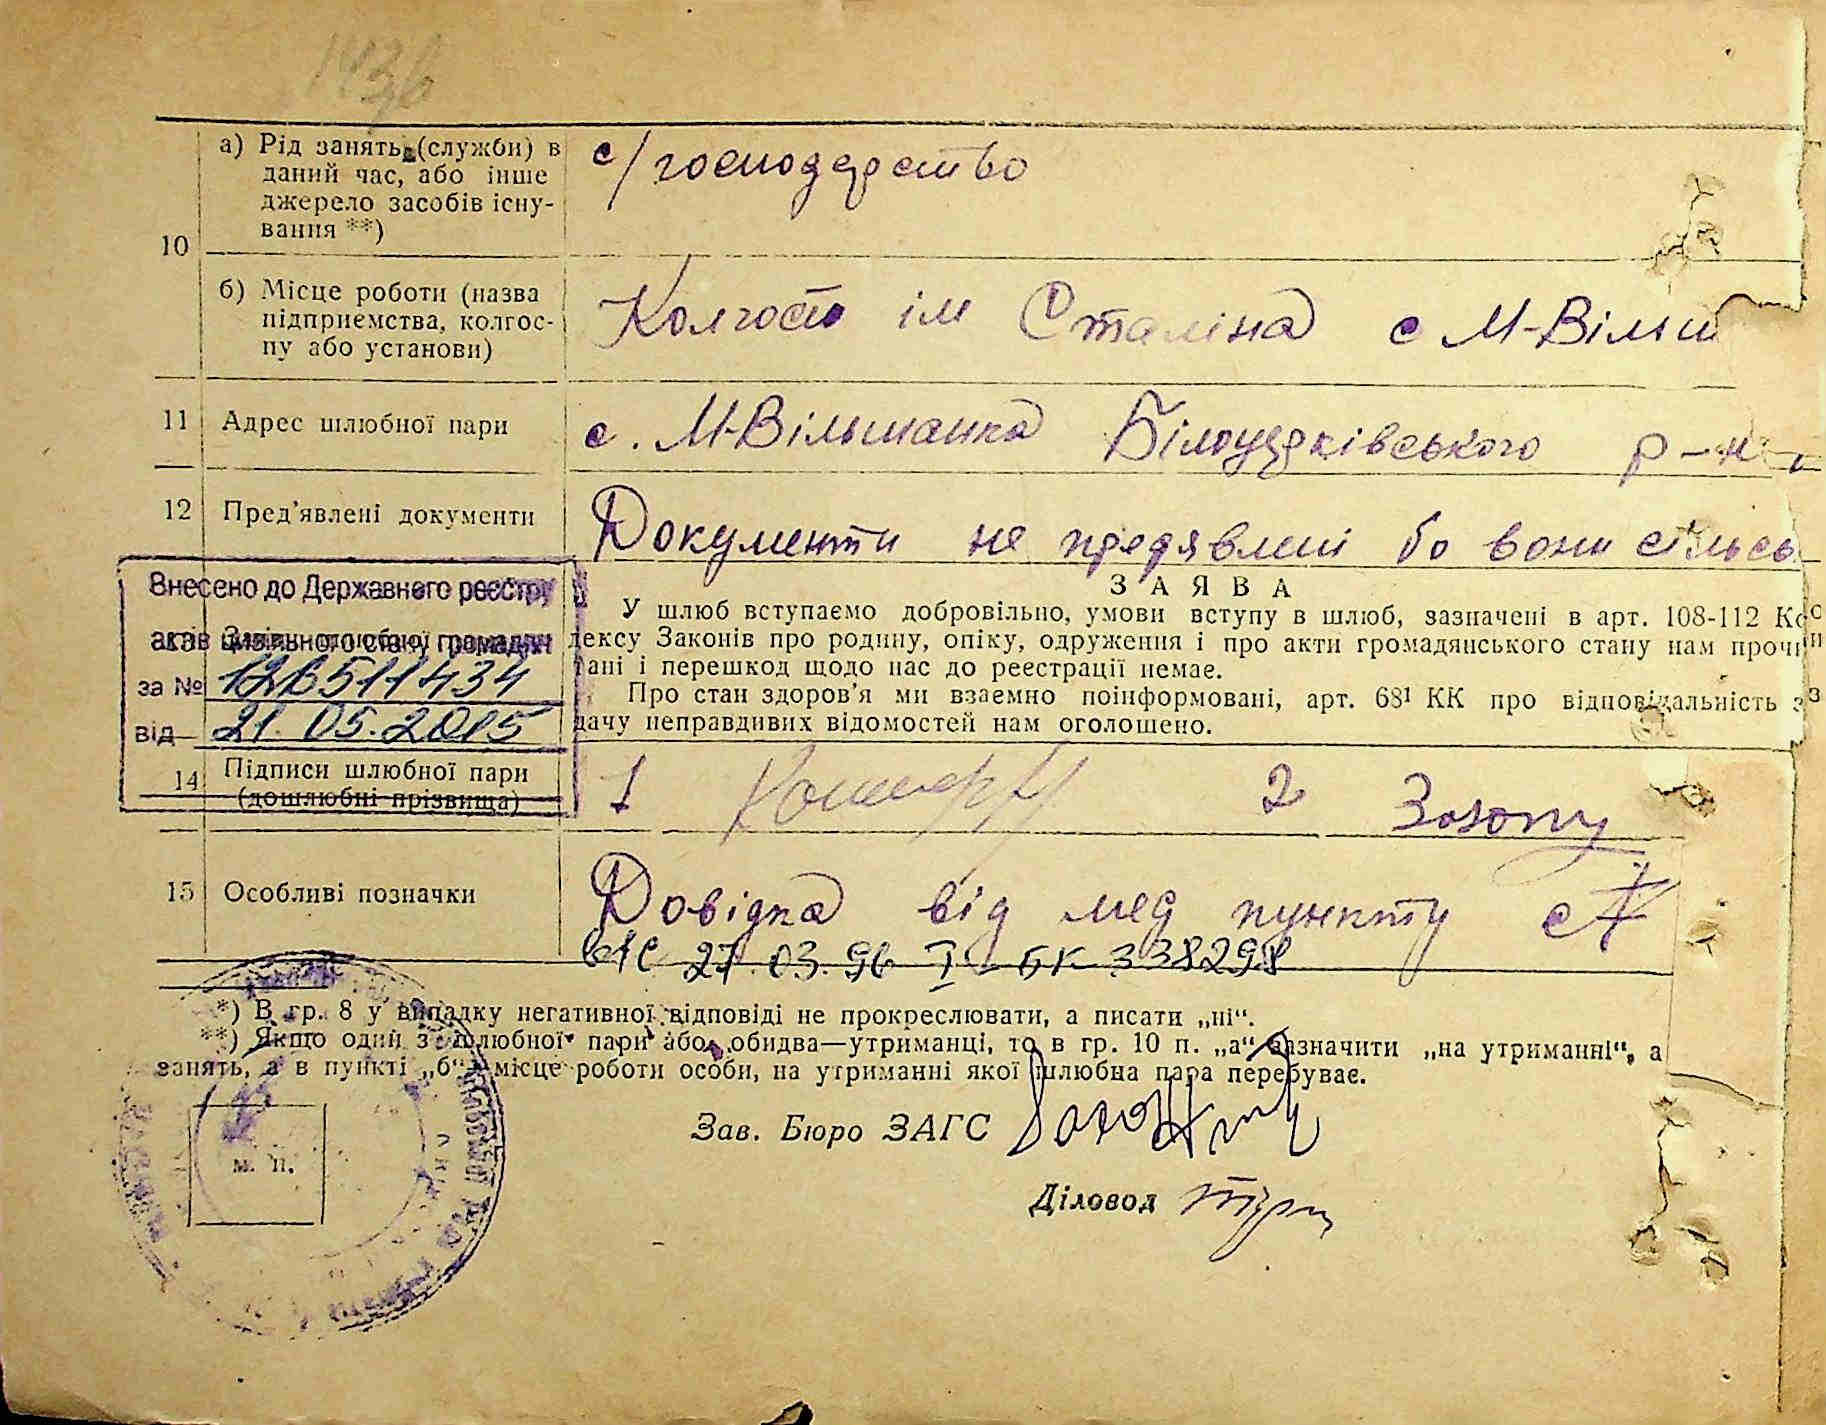 а) Рід занять (служби) в
даний час, або інше
джерело засобів існу-
вання **)
с/господарство
10
б) Місце роботи (назва
підприємства, колгос-
пу або установи)
Колгосп ім Сталіна с М-Вільш
11 Адрес шлюбної пари
с. М-Вільшанка Білоцерківського р-н
12 Пред'явлені документи
Документи не предявлені бо вони сільсь
Внесено до Державного реєстру
актів цивільного стану громадян
за № 126511434
від 21.05.2015
ЗАЯВА
У шлюб вступаємо добровільно, умови вступу в шлюб, зазначені в арт. 108-112 Ко
дексу Законів про родину, опіку, одруження і про акти громадянського стану нам прочи
тані і перешкод щодо нас до реестрації немає.
Про стан здоров'я ми взаємно поінформовані, арт. 68¹ КК про відповідальність з
дачу неправдивих відомостей нам оголошено.
14 Підписи шлюбної пари
(дошлюбні прізвища)
1 2
15 Особливі позначки
Довідка від мед пункту с
27.03.96 І-БК 338298
*) В гр. 8 у випадку негативної відповіді не прокреслювати, а писати „ні“.
**) Якщо один з шлюбної пари або обидва—утриманці, то в гр. 10 п. „а“ зазначити „на утриманні“, а
занять, а в пункті „б“ місце роботи особи, на утриманні якої шлюбна пара перебуває.
Зав. Бюро ЗАГС
м. п.
Діловод